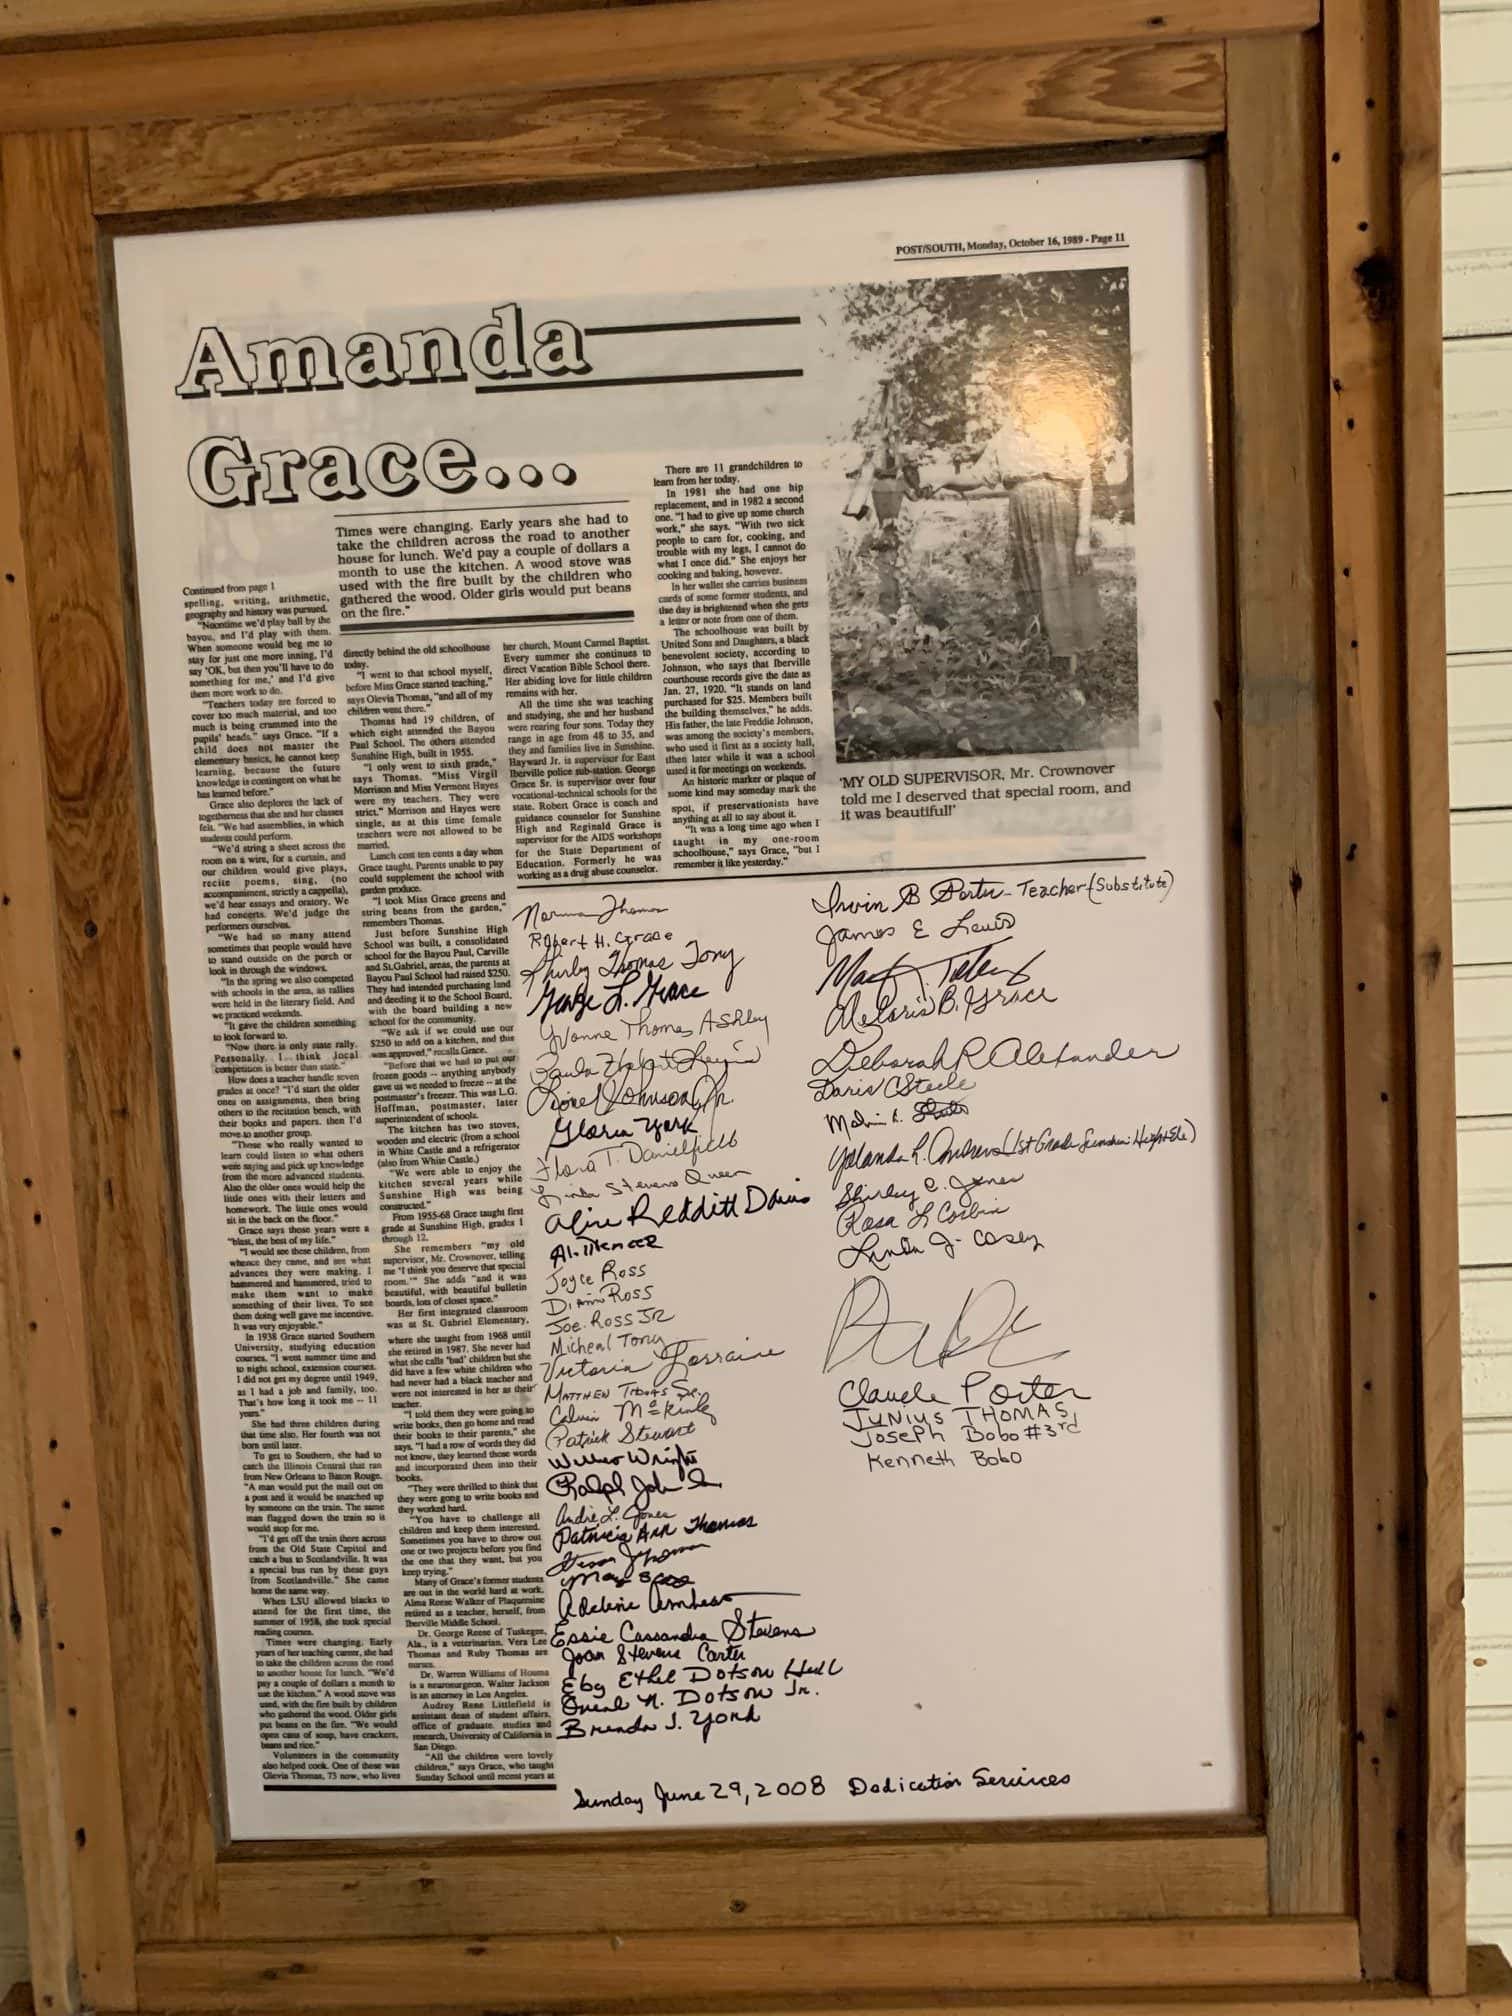 POST/SOUTH, Monday, October 16, 1989 - Page 11
Amanda
Grace...
Times were changing. Early years she had to
take the children across the road to another
house for lunch. We'd pay a couple of dollars a
month to use the kitchen. A wood stove was
used with the fire built by the children who
gathered the wood. Older girls would put beans
on the fire."
Continued from page 1
spelling, writing, arithmetic,
geography and history was pursued.
"Noontime we'd play ball by the
bayou, and I'd play with them.
When someone would beg me to
stay for just one more inning, I'd
say 'OK, but then you'll have to do
something for me,' and I'd give
them more work to do.
"Teachers today are forced to
cover too much material, and too
much is being crammed into the
pupils' heads," says Grace. "If a
child does not master the
elementary basics, he cannot keep
learning, because the future
knowledge is contingent on what he
has learned before."
Grace also deplores the lack of
togetherness that she and her classes
felt. "We had assemblies, in which
students could perform.
"We'd string a sheet across the
room on a wire, for a curtain, and
our children would give plays,
recite poems, sing, (no
accompaniment, strictly a cappella),
we'd hear essays and oratory. We
had concerts. We'd judge the
performers ourselves.
"We had so many attend
sometimes that people would have
to stand outside on the porch or
look in through the windows.
"In the spring we also competed
with schools in the area, as rallies
were held in the literary field. And
we practiced weekends.
"It gave the children something
to look forward to.
"Now there is only state rally.
Personally, I think local
competition is better than state."
How does a teacher handle seven
grades at once? "I'd start the older
ones on assignments, then bring
others to the recitation bench, with
their books and papers. then I'd
move to another group.
"Those who really wanted to
learn could listen to what others
were saying and pick up knowledge
from the more advanced students.
Also the older ones would help the
little ones with their letters and
homework. The little ones would
sit in the back on the floor."
Grace says those years were a
"blast, the best of my life."
"I would see these children, from
whence they came, and see what
advances they were making. I
hammered and hammered, tried to
make them want to make
something of their lives. To see
them doing well gave me incentive.
It was very enjoyable."
In 1938 Grace started Southern
University, studying education
courses. "I went summer time and
to night school, extension courses.
I did not get my degree until 1949,
as I had a job and family, too.
That's how long it took me -- 11
years."
She had three children during
that time also. Her fourth was not
born until later.
To get to Southern, she had to
catch the Illinois Central that ran
from New Orleans to Baton Rouge.
"A man would put the mail out on
a post and it would be snatched up
by someone on the train. The same
man flagged down the train so it
would stop for me.
"I'd get off the train there across
from the Old State Capitol and
catch a bus to Scotlandville. It was
a special bus run by these guys
from Scotlandville." She came
home the same way.
When LSU allowed blacks to
attend for the first time, the
summer of 1958, she took special
reading courses.
Times were changing. Early
years of her teaching career, she had
to take the children across the road
to another house for lunch. "We'd
pay a couple of dollars a month to
use the kitchen." A wood stove was
used, with the fire built by children
who gathered the wood. Older girls
put beans on the fire. "We would
open cans of soup, have crackers,
beans and rice."
Volunteers in the community
also helped cook. One of these was
Olevia Thomas, 73 now, who lives
directly behind the old schoolhouse
today.
"I went to that school myself,
before Miss Grace started teaching,"
says Olevia Thomas, "and all of my
children went there."
Thomas had 19 children, of
which eight attended the Bayou
Paul School. The others attended
Sunshine High, built in 1955.
"I only went to sixth grade,"
says Thomas. "Miss Virgil
Morrison and Miss Vermont Hayes
were my teachers. They were
strict." Morrison and Hayes were
single, as at this time female
teachers were not allowed to be
married.
Lunch cost ten cents a day when
Grace taught. Parents unable to pay
could supplement the school with
garden produce.
"I took Miss Grace greens and
string beans from the garden,"
remembers Thomas.
Just before Sunshine High
School was built, a consolidated
school for the Bayou Paul, Carville
and St.Gabriel, areas, the parents at
Bayou Paul School had raised $250.
They had intended purchasing land
and deeding it to the School Board,
with the board building a new
school for the community.
"We ask if we could use our
$250 to add on a kitchen, and this
was approved," recalls Grace.
"Before that we had to put our
frozen goods -- anything anybody
gave us we needed to freeze -- at the
postmaster's freezer. This was L.G.
Hoffman, postmaster, later
superintendent of schools.
The kitchen has two stoves,
wooden and electric (from a school
in White Castle and a refrigerator
(also from White Castle.)
"We were able to enjoy the
kitchen several years while
Sunshine High was being
constructed."
From 1955-68 Grace taught first
grade at Sunshine High, grades 1
through 12.
She remembers "my old
supervisor, Mr. Crownover, telling
me 'I think you deserve that special
room.'" She adds "and it was
beautiful, with beautiful bulletin
boards, lots of closet space."
Her first integrated classroom
was at St. Gabriel Elementary,
where she taught from 1968 until
she retired in 1987. She never had
what she calls "bad' children but she
did have a few white children who
had never had a black teacher and
were not interested in her as their
teacher.
"I told them they were going to
write books, then go home and read
their books to their parents," she
says. "I had a row of words they did
not know, they learned those words
and incorporated them into their
books.
"They were thrilled to think that
they were gong to write books and
they worked hard.
"You have to challenge all
children and keep them interested.
Sometimes you have to throw out
one or two projects before you find
the one that they want, but you
keep trying."
Many of Grace's former students
are out in the world hard at work.
Alma Reese Walker of Plaquemine
retired as a teacher, herself, from
Iberville Middle School.
Dr. George Reese of Tuskegee,
Ala., is a veterinarian. Vera Lee
Thomas and Ruby Thomas are
nurses.
Dr. Warren Williams of Houma
is a neurosurgeon. Walter Jackson
is an attorney in Los Angeles.
Audrey Rene Littlefield is
assistant dean of student affairs,
office of graduate studies and
research, University of California in
San Diego.
"All the children were lovely
children," says Grace, who taught
Sunday School until recent years at
her church, Mount Carmel Baptist.
Every summer she continues to
direct Vacation Bible School there.
Her abiding love for little children
remains with her.
All the time she was teaching
and studying, she and her husband
were rearing four sons. Today they
range in age from 48 to 35, and
they and families live in Sunshine.
Hayward Jr. is supervisor for East
Iberville police sub-station. George
Grace Sr. is supervisor over four
vocational-technical schools for the
state. Robert Grace is coach and
guidance counselor for Sunshine
High and Reginald Grace is
supervisor for the AIDS workshops
for the State Department of
Education. Formerly he was
working as a drug abuse counselor.
There are 11 grandchildren to
learn from her today.
In 1981 she had one hip
replacement, and in 1982 a second
one. "I had to give up some church
work," she says. "With two sick
people to care for, cooking, and
trouble with my legs, I cannot do
what I once did." She enjoys her
cooking and baking, however.
In her wallet she carries business
cards of some former students, and
the day is brightened when she gets
a letter or note from one of them.
The schoolhouse was built by
United Sons and Daughters, a black
benevolent society, according to
Johnson, who says that Iberville
courthouse records give the date as
Jan. 27, 1920. "It stands on land
purchased for $25. Members built
the building themselves," he adds.
His father, the late Freddie Johnson,
was among the society's members,
who used it first as a society hall,
then later while it was a school
used it for meetings on weekends.
An historic marker or plaque of
some kind may someday mark the
spot, if preservationists have
anything at all to say about it.
"It was a long time ago when I
taught in my one-room
schoolhouse," says Grace, "but I
remember it like yesterday."
'MY OLD SUPERVISOR, Mr. Crownover
told me I deserved that special room, and
it was beautiful!'
Norman Thomas
Robert H. Grace
Shirley Thomas Tony
George L. Grace
Yvonne Thomas Ashley
Paula
Lionel Johnson, Jr.
Gloria York
Flora T. Danielfield
Linda Stevens Queen
Aline Redditt Davis
Joyce Ross
Diann Ross
Joe. Ross JR
Micheal Tony
Victoria Lorraine
Matthew Thomas Sr.
Calvin McKinly
Patrick Stewart
Wright
Ralph
Andre L. Jones
Patricia Ann Thomas
Thomas
Adeline
Essie Cassandra Stevens
Joan Stevens Carter
Eby Ethel Dotson Hull
N. Dotson Jr.
Brenda J. York
Irvin B Porter - Teacher (Substitute)
James E Lewis
Deloris B. Grace
Deborah R Alexander
Doris C Steele
Melvin
Yolanda R. Andrews (1st Grade Sunshine High Ele)
Shirley C. Jones
Rosa L Corbin
Linda J. Casey
Claude Porter
Junius Thomas
Joseph Bobo #3rd
Kenneth Bobo
Sunday June 29, 2008 Dedication Services